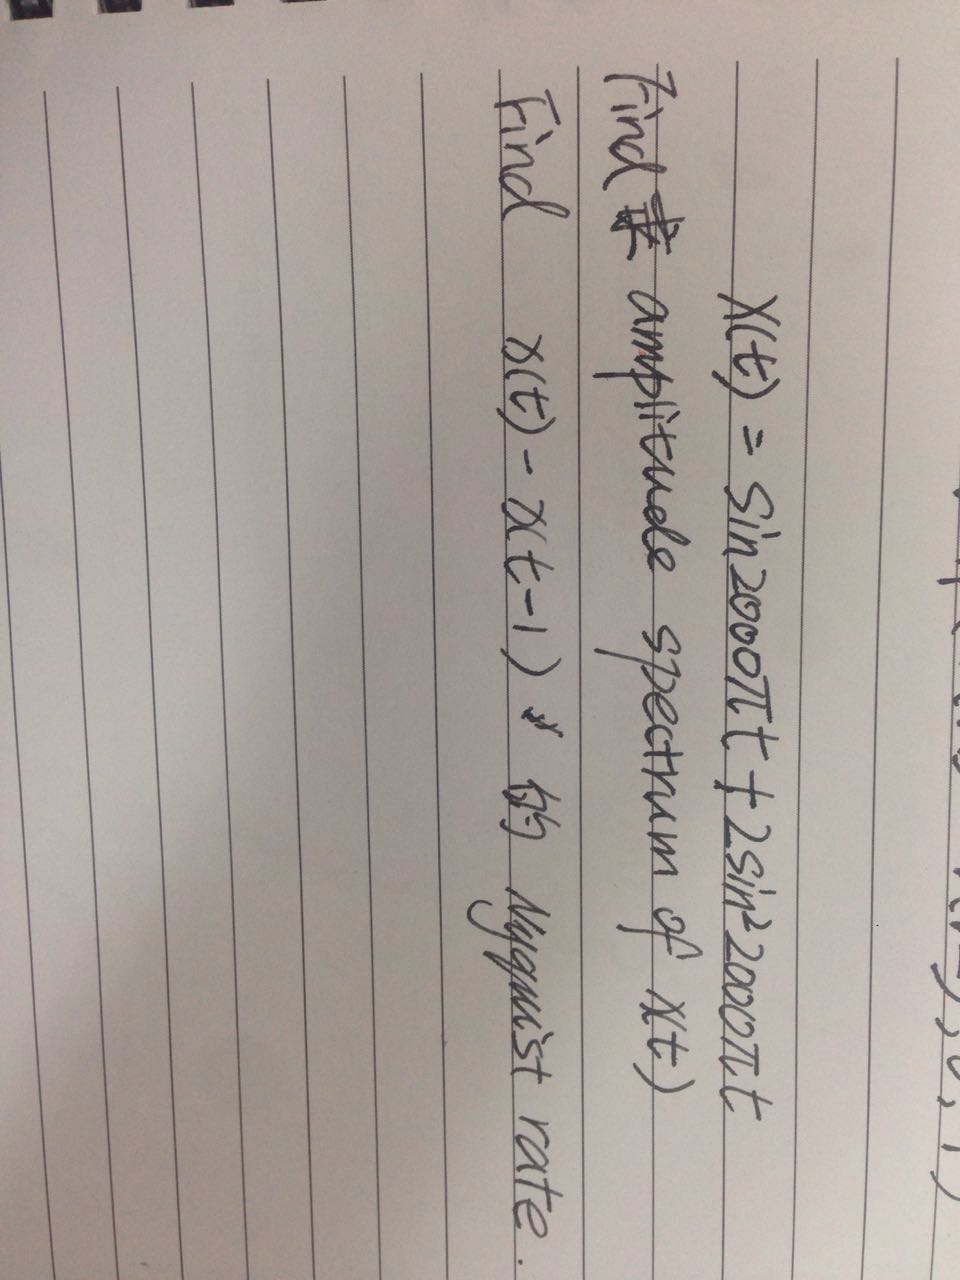 x(t) = sin2000πt + 2sin²2000πt
Find 求 amplitude spectrum of xt)
Find x(t) - xt-1) 的 Nyquist rate.